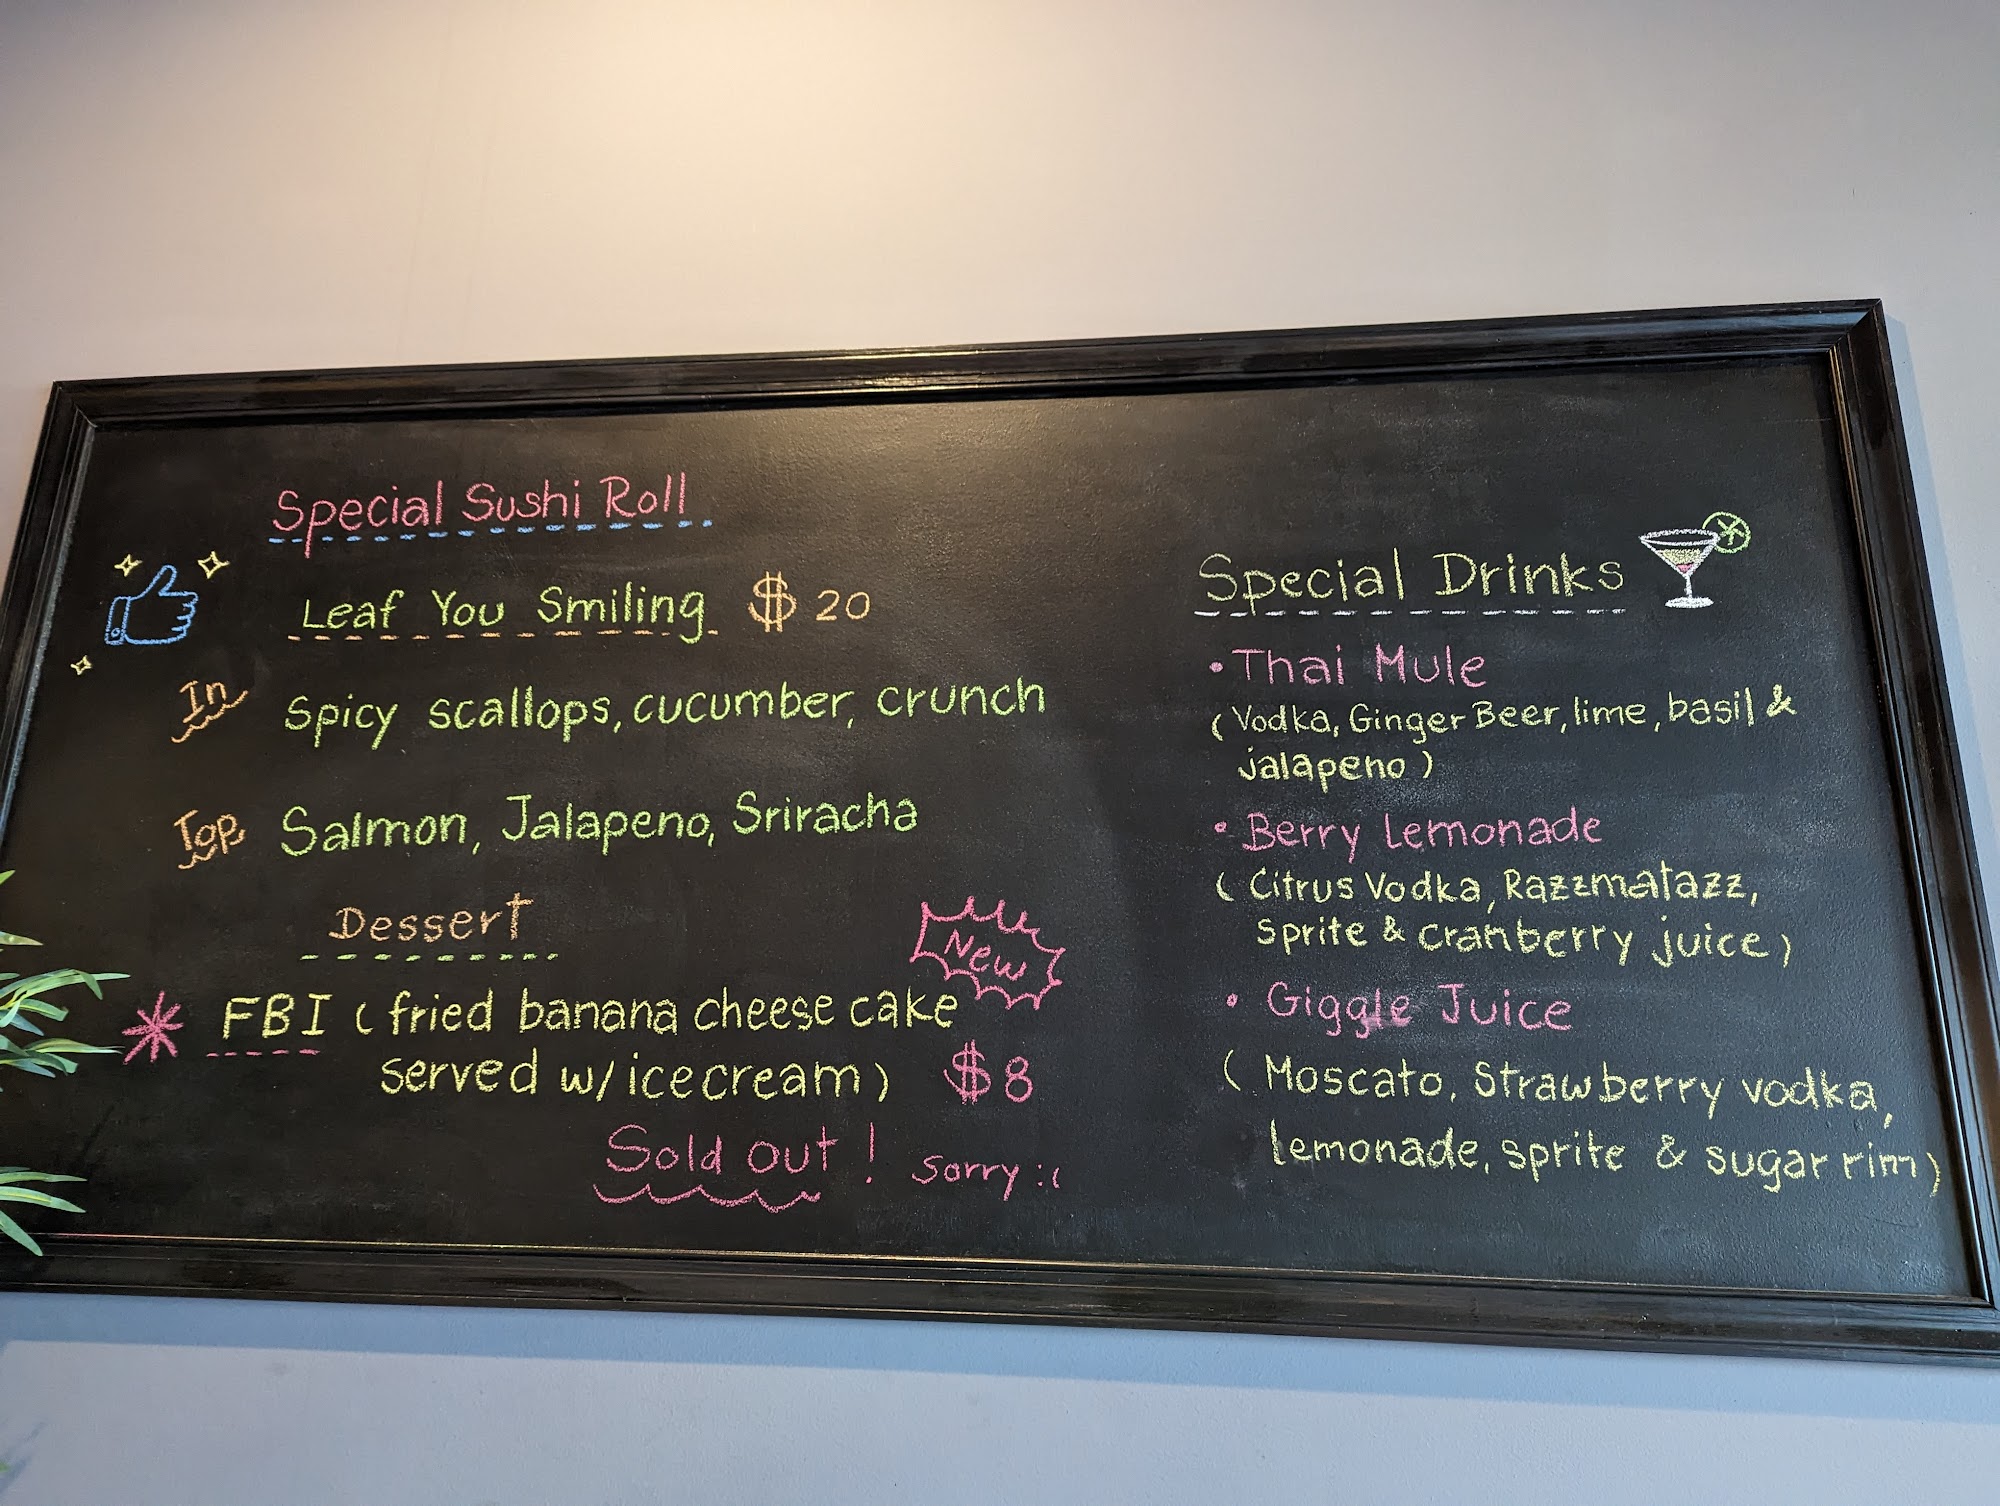 Special Sushi Roll
Leaf You Smiling $20
In Spicy scallops, cucumber, crunch
Top Salmon, Jalapeno, Sriracha
Dessert
New
FBI (fried banana cheese cake
served w/ icecream) $8
Sold out! Sorry :(
Special Drinks
• Thai Mule
(Vodka, Ginger Beer, lime, basil &
jalapeno)
• Berry Lemonade
(Citrus Vodka, Razzmatazz,
Sprite & cranberry juice)
• Giggle Juice
(Moscato, Strawberry vodka,
lemonade, sprite & sugar rim)